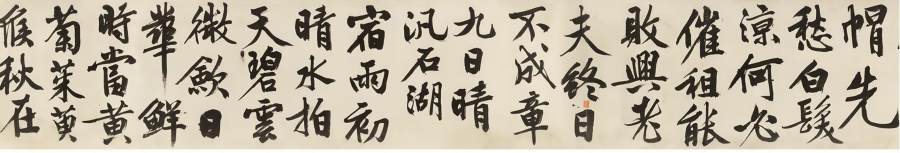 帽先
愁白髮
涼何必
催租能
敗興老
夫終日
不成章
九日晴
汎石湖
宿雨初
晴水拍
天碧雲
微歛日
華鮮
時當黃
菊茱萸
候秋在